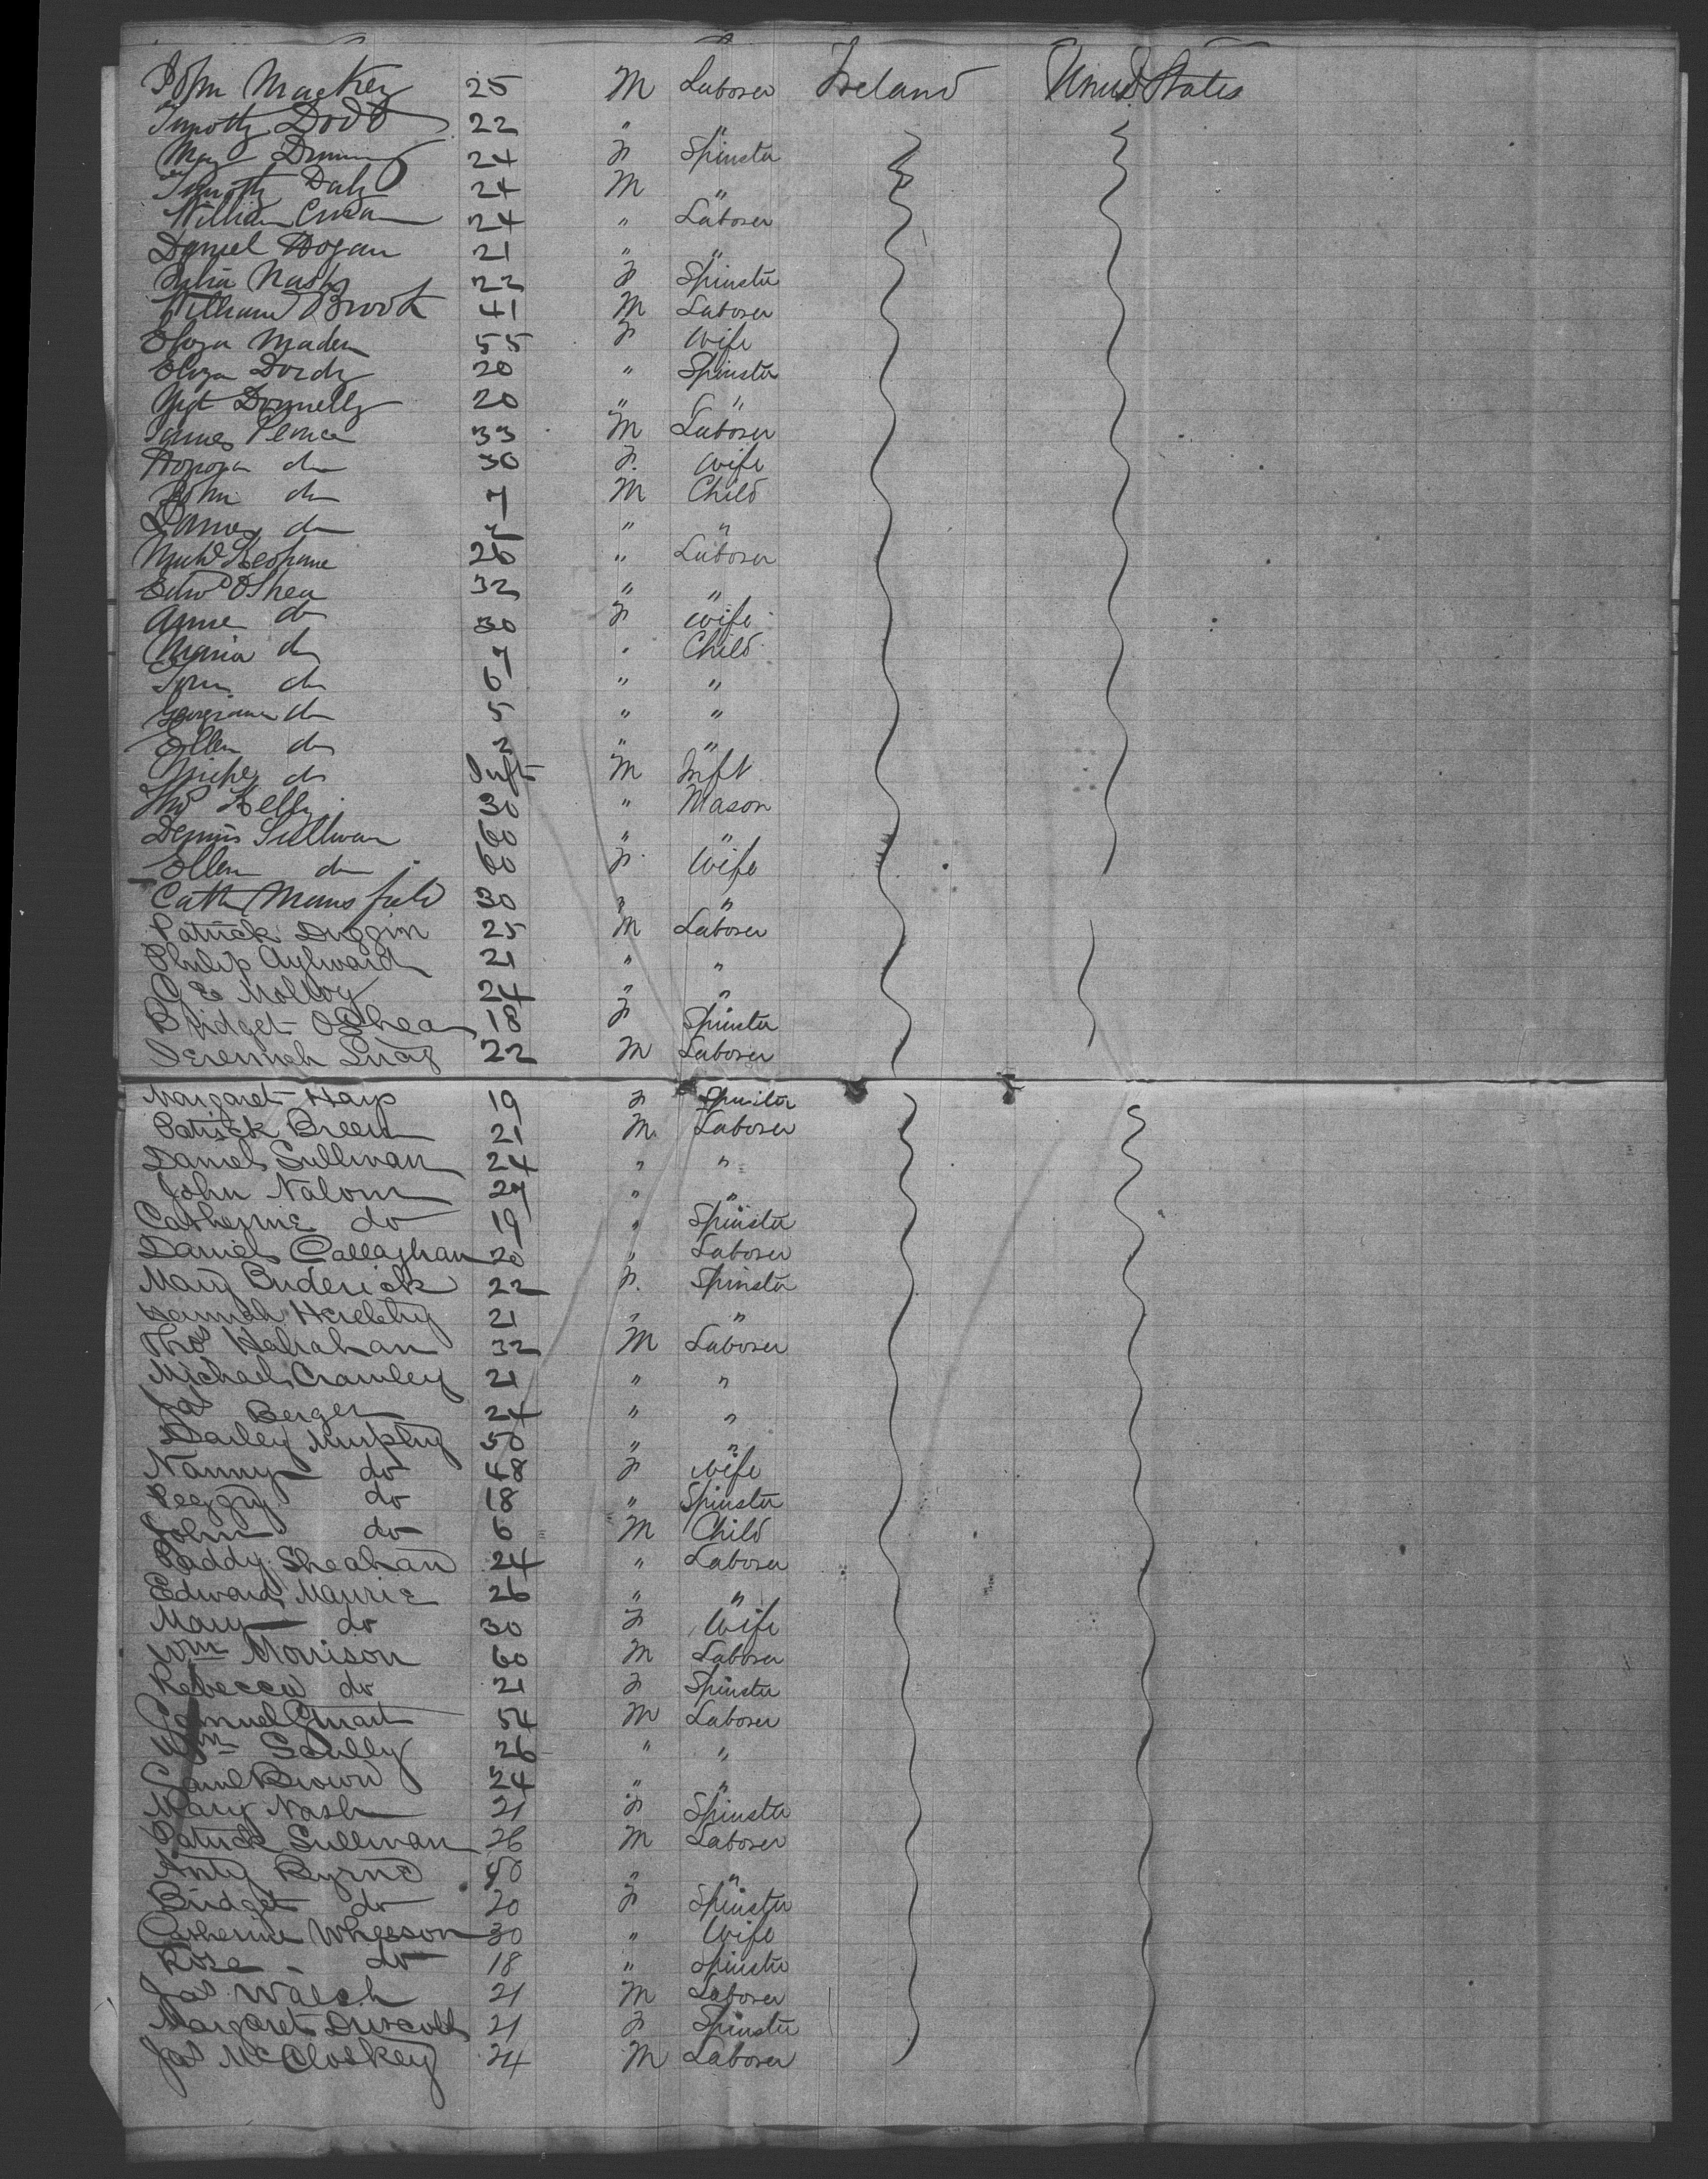 John Mackey 25 M Laborer Ireland United States
Timothy Dodd 22 " "
Mary 24 F Spinster
Timothy Daly 24 M "
William 24 " Laborer
Daniel Hogan 21 " "
Julia Nash 22 F Spinster
William Brook 41 M Laborer
Eliza Maden 55 F Wife
Eliza 20 " Spinster
Mgt Donnelly 20 " "
James Peirce 33 M Laborer
do 30 F. Wife
John do 7 M Child
James do " "
Michl Keohane 26 " Laborer
Edwd OShea 32 " "
Anne do 30 F Wife
Maria do 7 " Child
do 6 " "
Georgiana do 5 " "
Ellen do 2 " "
do Inft M Inft
Thos Kelly 30 " Mason
Dennis Sullivan 60 " "
Ellen do 60 F. Wife
Cath Mansfield 30 " "
Patrick Duggin 25 M Laborer
Philip Aylward 21 " "
Molloy 24 " "
Bridget OShea 18 F Spinster
Jeremiah 22 M Laborer
Margaret Hays 19 F Spinster
Patrick Breen 21 M. Laborer
Daniel Sullivan 24 " "
John 27 " "
Catherine do 19 " Spinster
Daniel Callaghan 20 " Laborer
Mary Buderick 22 F. Spinster
Hannah 21 " "
Thos Halrahan 32 M Laborer
Michael Crowley 21 " "
Jas Bergen 24 " "
Darley Murphy 50 " "
Nanny do 48 F Wife
Peggy do 18 " Spinster
John do 6 M Child
Paddy Sheahan 24 " Laborer
Edward 26 " "
Mary do 30 F Wife
Wm Morrison 60 M Laborer
Rebecca do 21 F Spinster
Samuel Smart 54 M Laborer
Wm Scully 26 " "
Saml Brown 24 " "
Mary Nash 21 F Spinster
Patrick Sullivan 26 M Laborer
Anty Byrne 40 " "
Bridget do 20 F Spinster
Catherine Wheeson 30 " Wife
Rose do 18 " Spinster
Jas Walsh 21 M Laborer
Margaret Driscoll 21 F Spinster
Jas McCloskey 24 M Laborer